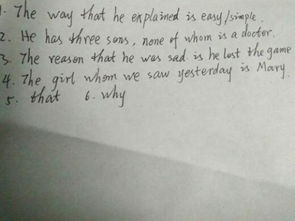 1. The way that he explained is easy/simple.
2. He has three sons, none of whom is a doctor.
3. The reason that he was sad is he lost the game
4. The girl whom we saw yesterday is Mary.
5. that 6. why